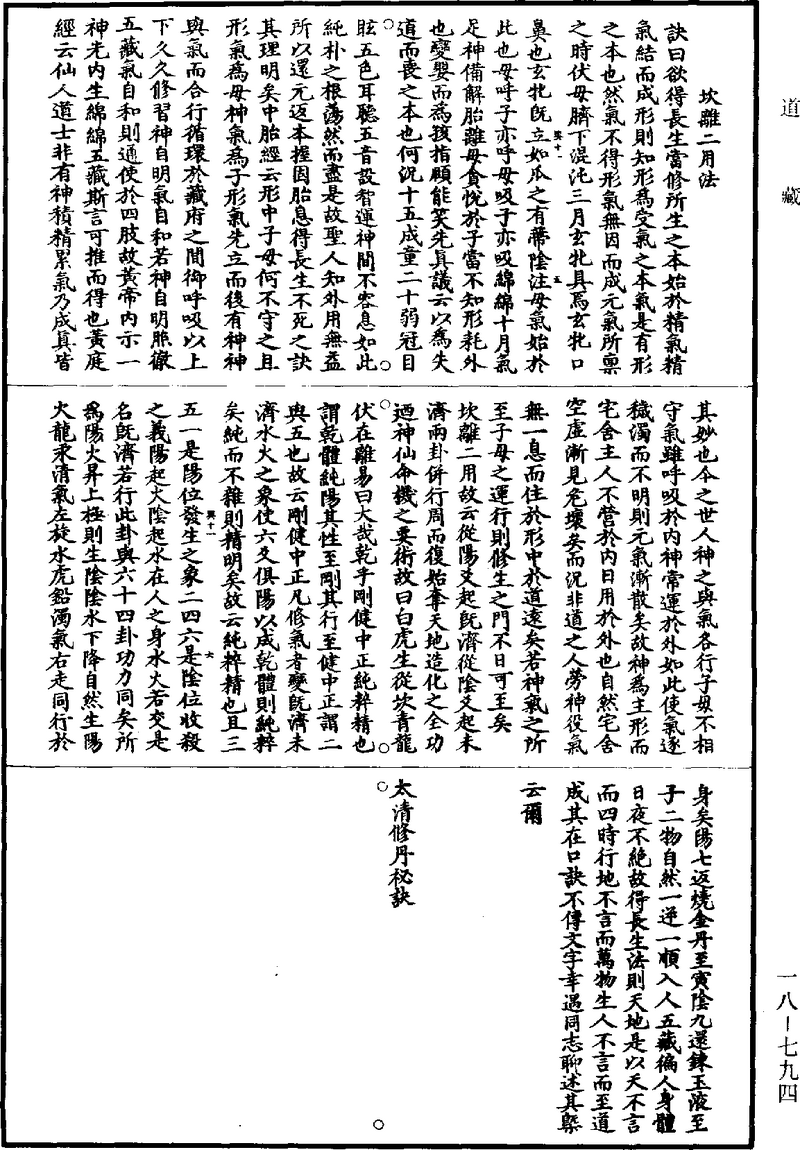 道藏
坎離二用法
訣曰欲得長生當修所生之本始於精氣精
氣結而成形則知形為受氣之本氣是有形
之本也然氣不得形氣無因而成元氣所禀
之時伏母臍下混沌三月玄牝具焉玄牝口
鼻也玄牝既立如瓜之有蔕陰注母氣始於
此也母呼子亦呼母吸子亦吸綿綿十月氣
足神備解胎離母貪悅於子當不知形耗外
也變嬰而為孩指顧能笑先真議云以為失
道而喪之本也何況十五成童二十弱冠目
眩五色耳聽五音設智運神間不容息如此
純朴之根蕩然而盡是故聖人知外用無益
所以還元返本握因胎息得長生不死之訣
其理明矣中胎經云形中子母何不守之且
形氣為母神氣為子形氣先立而後有神神
與氣而合行循環於藏府之間御呼吸以上
下久久修習神自明氣自和若神自明照徹
五藏氣自和則通使於四肢故黃帝內示一
神先內生綿綿五藏斯言可推而得也黃庭
經云仙人道士非有神積精累氣乃成真皆
其妙也今之世人神之與氣各行子母不相
守氣雖呼吸於內神常運於外如此使氣逐
穢濁而不明則元氣漸散矣故神為主形而
宅舍主人不營於內日用於外也自然宅舍
空虛漸見危壞矣而況非道之人勞神役氣
無一息而住於形中於道遠矣若神氣之所
至子母之運行則修生之門不日可至矣
坎離二用故云從陽爻起既濟從陰爻起未
濟兩卦併行周而復始奪天地造化之全功
迺神仙命機之要術故曰白虎生從坎青龍
伏在離易曰大哉乾乎剛健中正純粹精也
謂乾體純陽其性至剛其行至健中正謂二
與五也故云剛健中正凡修氣者變既濟未
濟水火之象使六爻俱陽以成乾體則純粹
矣純而不雜則精明矣故云純粹精也且三
五一是陽位發生之象二四六是陰位收殺
之義陽起火陰起水在人之身水火若交是
名既濟若行此卦與六十四卦功力同矣所
為陽火昇上極則生陰陰水下降自然生陽
火龍汞清氣左旋水虎鉛濁氣右走同行於
身矣陽七返燒金丹至寅陰九還鍊玉液至
子二物自然一逆一順入人五藏徧人身體
日夜不絕故得長生法則天地是以天不言
而四時行地不言而萬物生人不言而至道
成其在口訣不傳文字幸遇同志聊述其槩
云爾
太清修丹秘訣
一八-七九四